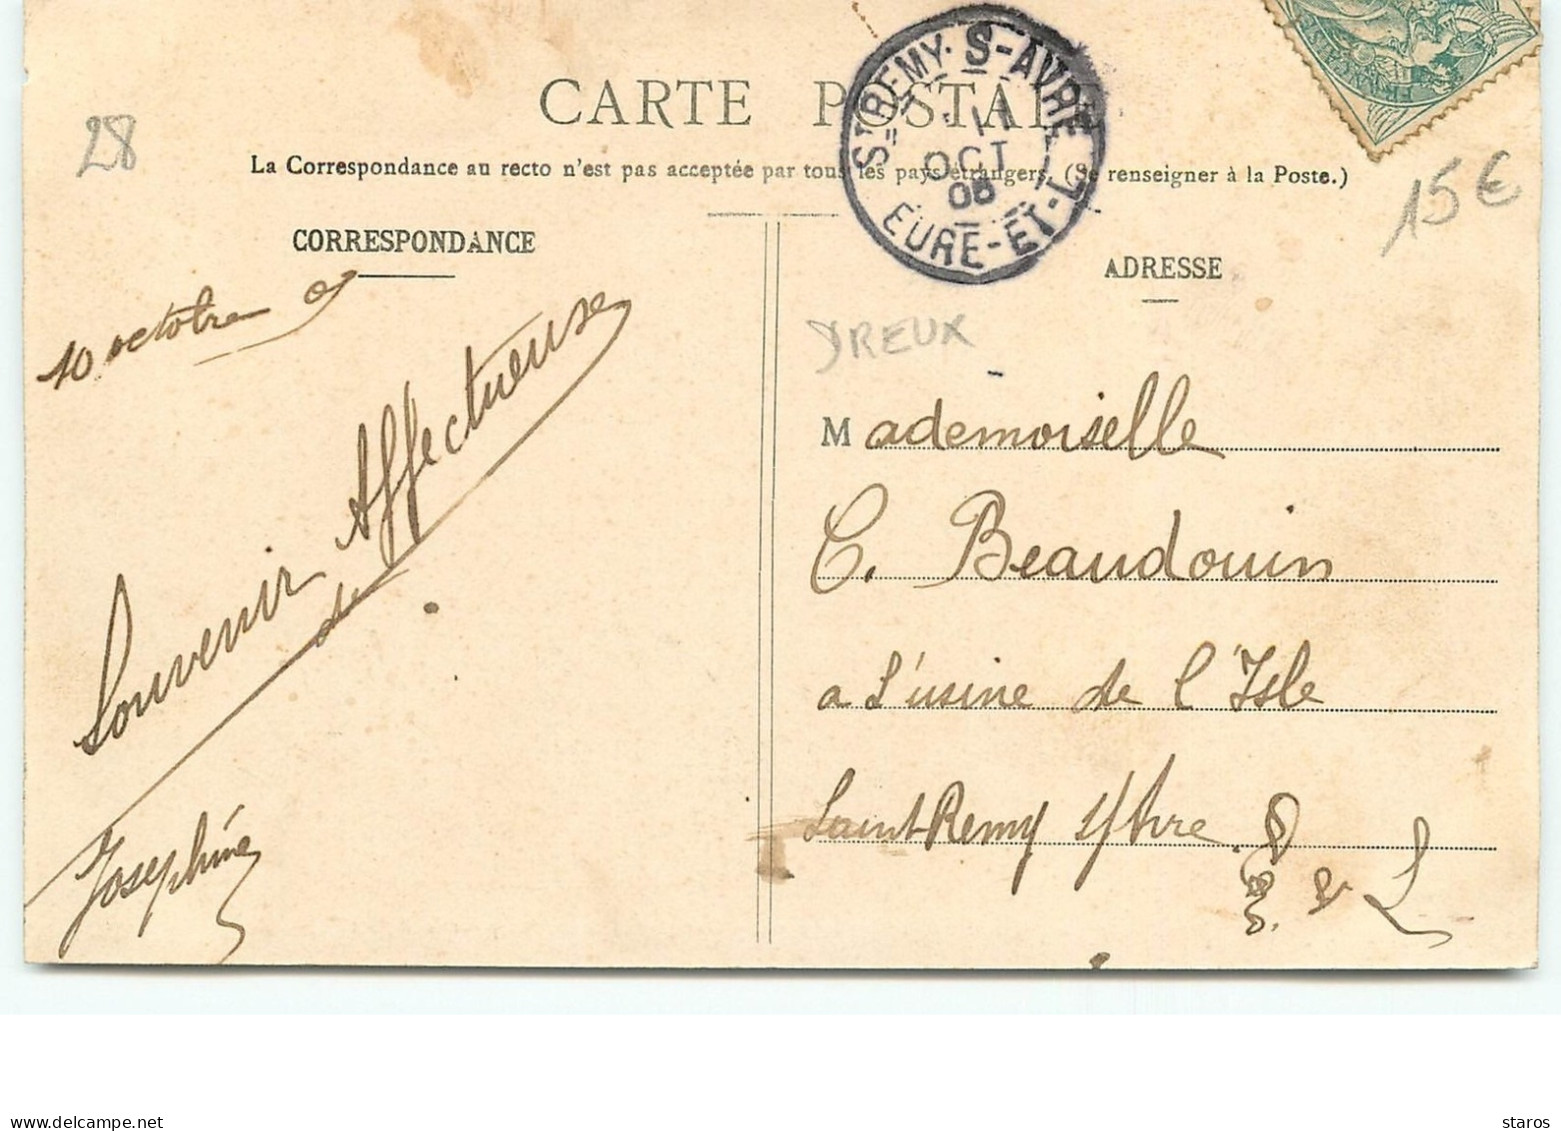 CARTE POSTALE
La Correspondance au recto n'est pas acceptée par tous les pays étrangers. (Se renseigner à la Poste.)
28
15€
St REMY-S-AVRE
11
OCT
EURE-ET-L
CORRESPONDANCE
10 octobre
Souvenir Affectueuse
de
Josephine
ADRESSE
DREUX
Mademoiselle
C. Beaudouin
a L'usine de l'Isle
Saint-Remy s/Avre
E. & L
www.delcampe.net
staros